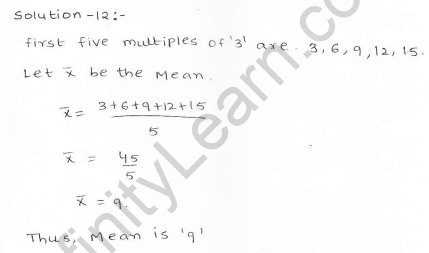 Solution -12:-
first five multiples of '3' are. 3, 6, 9, 12, 15.
Let x̄ be the Mean.
x̄ = 3+6+9+12+15 / 5
x̄ = 45 / 5
x̄ = 9.
Thus, Mean is '9'
finityLearn.com